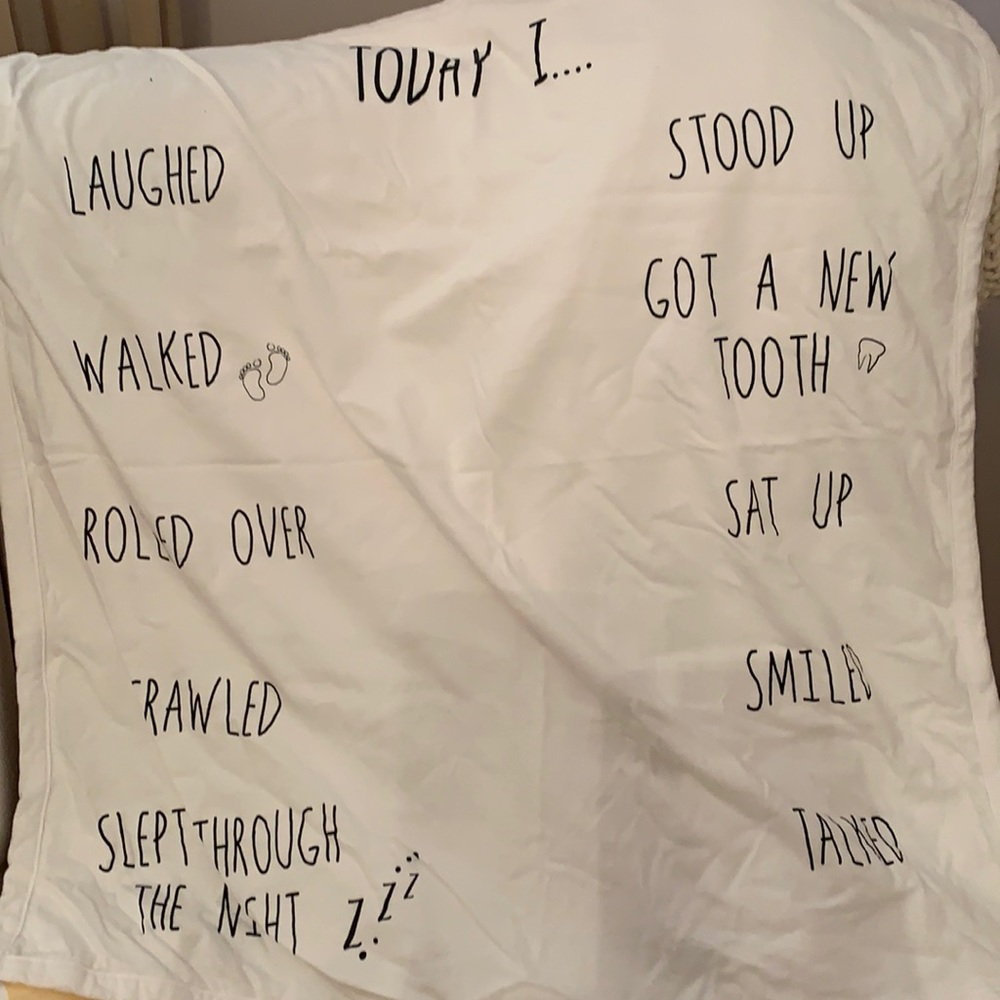 TODAY I....
LAUGHED
WALKED
ROLED OVER
RAWLED
SLEPT THROUGH
THE NSHT Z Z Z
STOOD UP
GOT A NEW
TOOTH
SAT UP
SMILED
TALKED